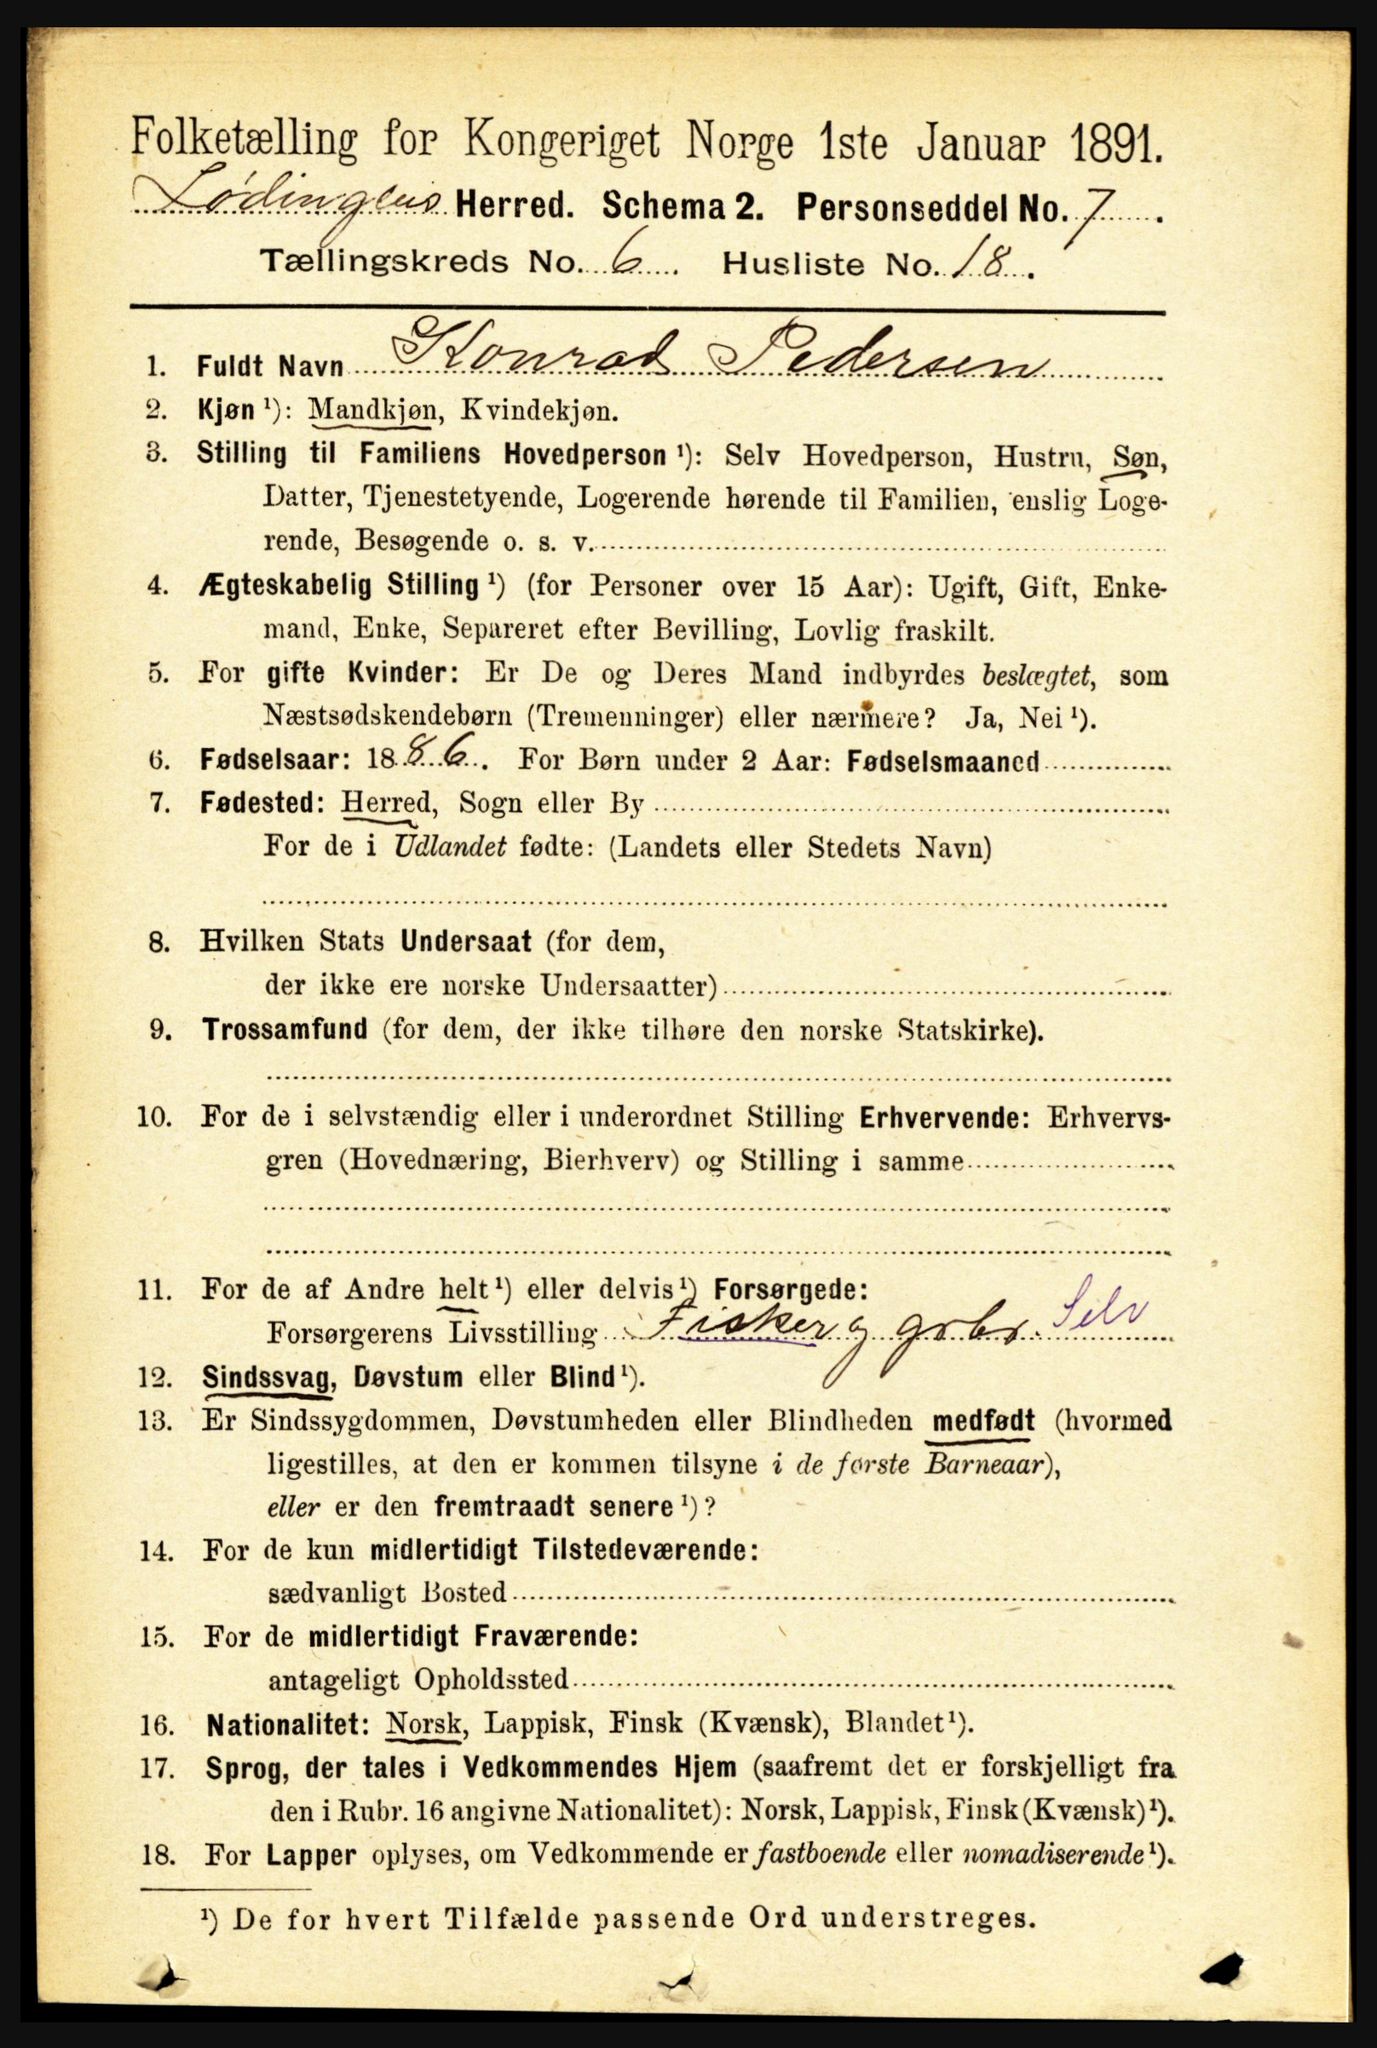 Folketælling for Kongeriget Norge 1ste Januar 1891.
Lødingens Herred. Schema 2. Personseddel No. 7.
Tællingskreds No. 6. Husliste No. 18.
1. Fuldt Navn Konrad Pedersen
2. Kjøn ¹): Mandkjøn, Kvindekjøn.
3. Stilling til Familiens Hovedperson ¹): Selv Hovedperson, Hustru, Søn,
Datter, Tjenestetyende, Logerende hørende til Familien, enslig Loge-
rende, Besøgende o. s. v.
4. Ægteskabelig Stilling ¹) (for Personer over 15 Aar): Ugift, Gift, Enke-
mand, Enke, Separeret efter Bevilling, Lovlig fraskilt.
5. For gifte Kvinder: Er De og Deres Mand indbyrdes beslægtet, som
Næstsødskendebørn (Tremenninger) eller nærmere? Ja, Nei ¹).
6. Fødselsaar: 1886. For Børn under 2 Aar: Fødselsmaaned
7. Fødested: Herred, Sogn eller By
For de i Udlandet fødte: (Landets eller Stedets Navn)
8. Hvilken Stats Undersaat (for dem,
der ikke ere norske Undersaatter)
9. Trossamfund (for dem, der ikke tilhøre den norske Statskirke).
10. For de i selvstændig eller i underordnet Stilling Erhvervende: Erhvervs-
gren (Hovednæring, Bierhverv) og Stilling i samme
11. For de af Andre helt ¹) eller delvis ¹) Forsørgede:
Forsørgerens Livsstilling Fisker og grbr. Selv
12. Sindssvag, Døvstum eller Blind ¹).
13. Er Sindssygdommen, Døvstumheden eller Blindheden medfødt (hvormed
ligestilles, at den er kommen tilsyne i de første Barneaar),
eller er den fremtraadt senere ¹)?
14. For de kun midlertidigt Tilstedeværende:
sædvanligt Bosted
15. For de midlertidigt Fraværende:
antageligt Opholdssted
16. Nationalitet: Norsk, Lappisk, Finsk (Kvænsk), Blandet ¹).
17. Sprog, der tales i Vedkommendes Hjem (saafremt det er forskjelligt fra
den i Rubr. 16 angivne Nationalitet): Norsk, Lappisk, Finsk (Kvænsk) ¹).
18. For Lapper oplyses, om Vedkommende er fastboende eller nomadiserende ¹).
¹) De for hvert Tilfælde passende Ord understreges.